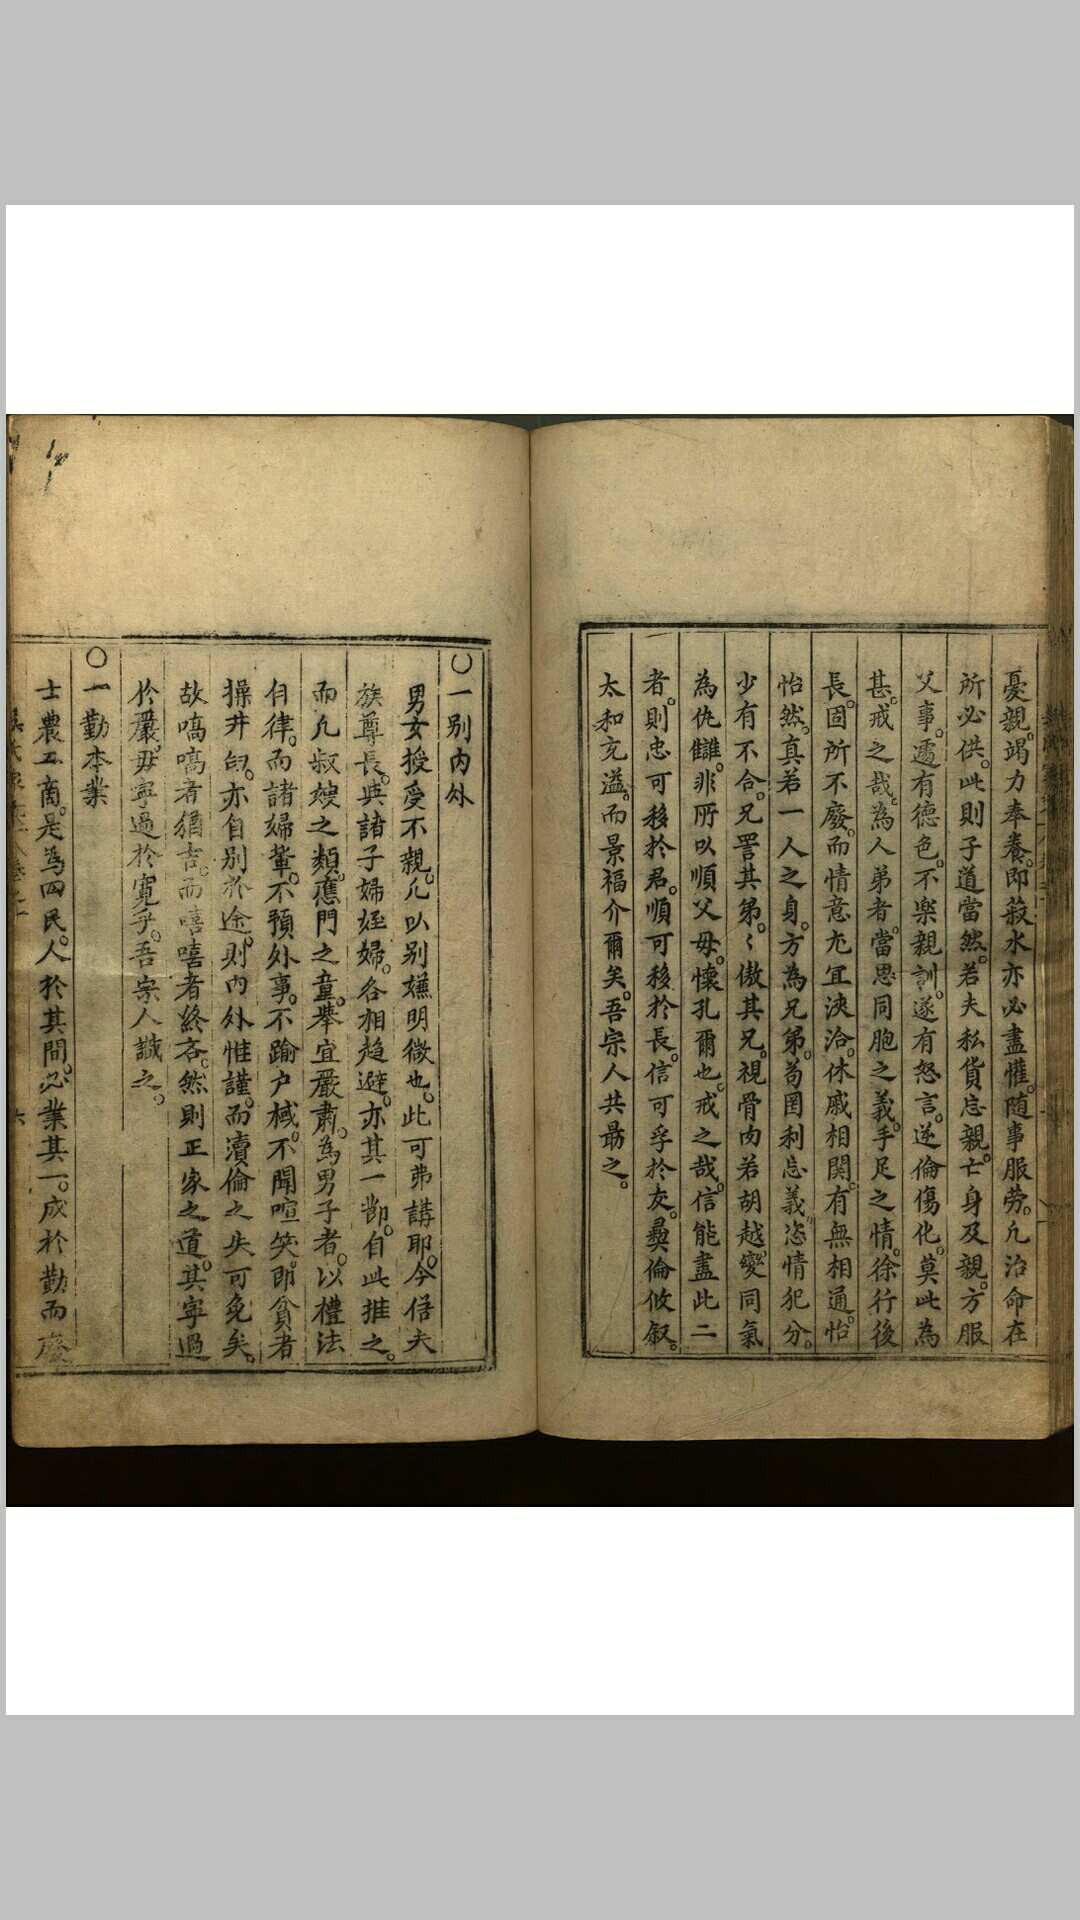 憂親。竭力奉養。即菽水亦必盡懽。随事服劳。凢治命在
所必供。此則子道當然。若夫私貨忘親。亡身及親。方服
父事。遽有德色。不楽親訓。遂有怒言。迯倫傷化。莫此為
甚。戒之哉。為人弟者。當思同胞之義。手足之情。徐行後
長。固所不廢。而情意尤冝浹洽。休戚相関。有無相通。怡
怡然。真若一人之身。方為兄弟。茍罔利忘義。恣情犯分。
少有不合。兄詈其弟。〻傲其兄。視骨肉若胡越。變同氣
為仇讎。非所以順父毋。懷孔爾也。戒之哉。信能盡此二
者。則忠可移於君。順可移於長。信可孚於友。彛倫攸叙。
太和充溢。而景福介爾矣。吾宗人共勗之。
〇一别内外
男女授受不親。凢以别嫌明微也。此可弗講耶。今俉夫
族尊長。與諸子婦姪婦。各相趋避。亦其一莭。自此推之。
而凢叔嫂之類。應門之童。槩宜嚴肅。為男子者。以禮法
自律。而諸婦軰。不預外事。不踰户棫。不聞喧笑。即貧者
操井臼。亦自别於途。則内外惟謹。而瀆倫之失可免矣。
故嗃嗃者猶吉。而嘻嘻者終吝。然則正家之道。其寧過
於嚴。毋寧過於寛乎。吾宗人諴之。
〇一勤本業
士農工商。是為四民。人於其間。必業其一。成於勤而廢